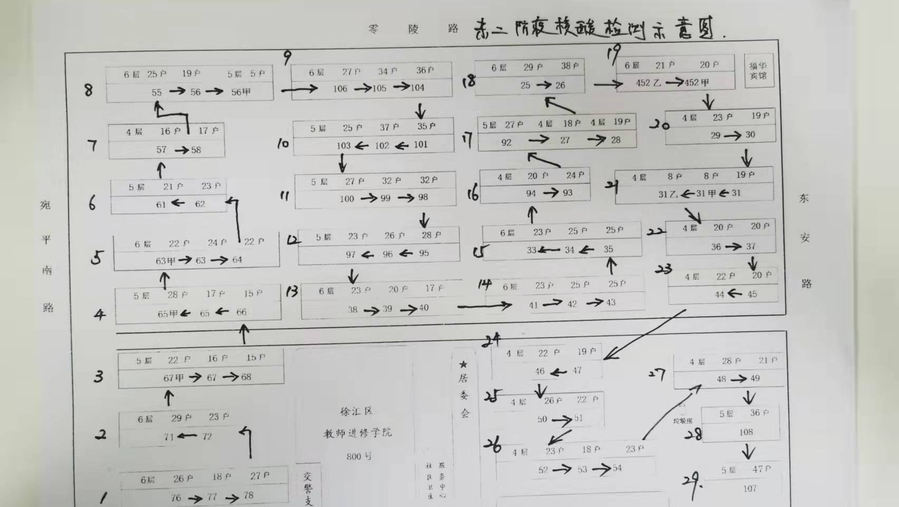 零陵路 东二防疫核酸检测示意图
福华
宾馆
宛平南路
东安路
8
6层 25户 19户 5层 5户
55 → 56 → 56甲
7
4层 16户 17户
57 → 58
6
5层 21户 23户
61 ← 62
5
6层 22户 24户 22户
63甲 → 63 → 64
4
5层 28户 17户 15户
65甲 ← 65 ← 66
3
5层 22户 16户 15户
67甲 → 67 → 68
2
6层 29户 23户
71 ← 72
1
6层 26户 18户 27户
76 → 77 → 78
9
6层 27户 34户 36户
106 → 105 → 104
10
5层 25户 37户 35户
103 ← 102 ← 101
11
5层 27户 32户 32户
100 → 99 → 98
12
5层 23户 26户 28户
97 ← 96 ← 95
13
6层 23户 20户 17户
38 → 39 → 40
14
6层 23户 25户 25户
41 → 42 → 43
15
6层 23户 25户 25户
33 ← 34 ← 35
16
4层 20户 24户
94 → 93
17
5层 27户 4层 18户 4层 19户
92 → 27 → 28
18
6层 29户 38户
25 → 26
19
6层 21户 20户
452乙 → 452甲
20
4层 23户 19户
29 → 30
21
4层 8户 8户 19户
31乙 ← 31甲 ← 31
22
4层 20户 20户
36 → 37
23
4层 22户 20户
44 ← 45
24
4层 22户 19户
46 ← 47
25
4层 26户 22户
50 → 51
26
4层 23户 18户 23户
52 → 53 → 54
27
4层 28户 21户
48 → 49
28
5层 36户
108
29.
5层 47户
107
★居委会
徐汇区
教师进修学院
800号
交警支